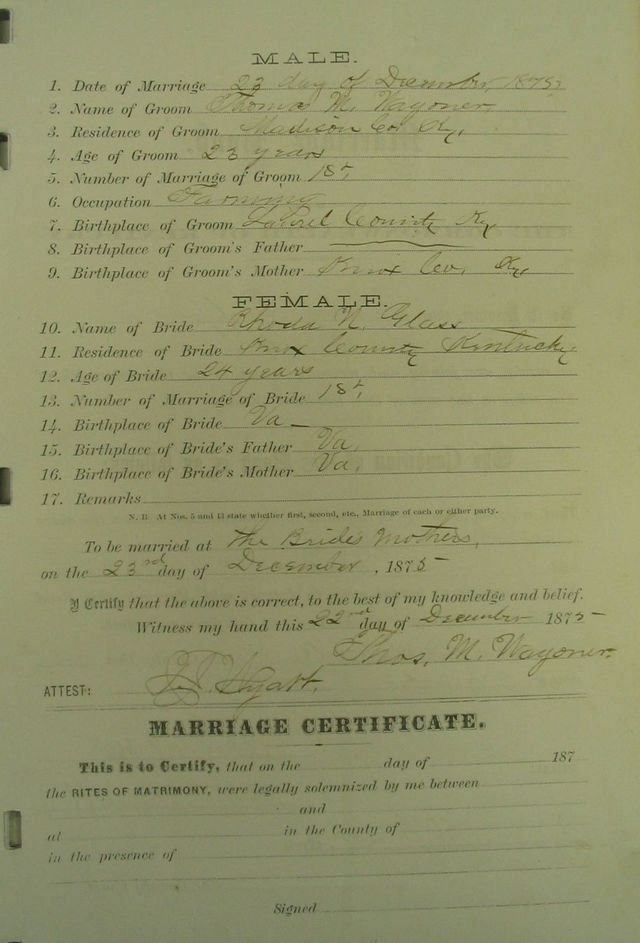 MALE.
1. Date of Marriage 23 day of December, 1875
2. Name of Groom Thomas M. Wagoner
3. Residence of Groom Madison Co. Ky,
4. Age of Groom 23 years
5. Number of Marriage of Groom 1st,
6. Occupation Farming
7. Birthplace of Groom Laurel County Ky
8. Birthplace of Groom's Father
9. Birthplace of Groom's Mother Knox Co. Ky
FEMALE.
10. Name of Bride Rhoda N. Glass
11. Residence of Bride Knox County Kentucky
12. Age of Bride 24 years
13. Number of Marriage of Bride 1st,
14. Birthplace of Bride Va —
15. Birthplace of Bride's Father Va,
16. Birthplace of Bride's Mother Va,
17. Remarks
N. B. At Nos. 5 and 13 state whether first, second, etc., Marriage of each or either party.
To be married at The Brides Mothers,
on the 23rd day of December, 1875
I Certify that the above is correct, to the best of my knowledge and belief.
Witness my hand this 22nd day of December 1875
Thos. M. Wagoner.
ATTEST: Hyatt.
MARRIAGE CERTIFICATE.
This is to Certify, that on the day of 187
the RITES OF MATRIMONY, were legally solemnized by me between
and
at in the County of
in the presence of
Signed